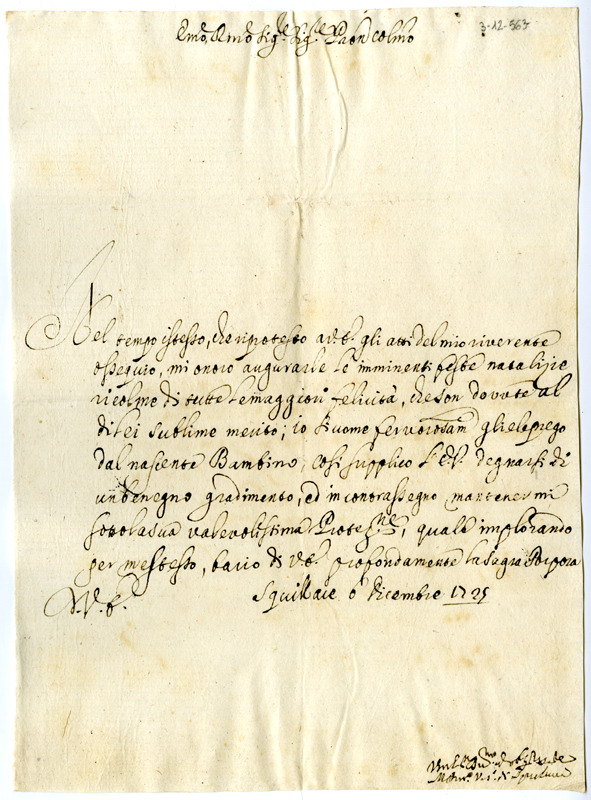 Emõ, e Rmõ Sigr Sigr Pron Colmo
3-12-567
Nel tempo istesso, che riprotesto a V.E. gli atti del mio riverente
ossequio, mi onoro augurarle le imminenti feste natalizie
ricolme di tutte le maggiori felicità, che son dovute al
di lei sublime merito; Io siccome fervorosam. gliele priego
dal nasciente Bambino, così supplico l'E.V. degnarsi di
un benegno gradimento, ed in contrassegno mantenermi
sotto la sua valevolissima Protezne, quale implorando
per me stesso, bacio di V.E. profondamente la Sagra Porpora
Squillace 6 Dicembre 1725
D.V.E.